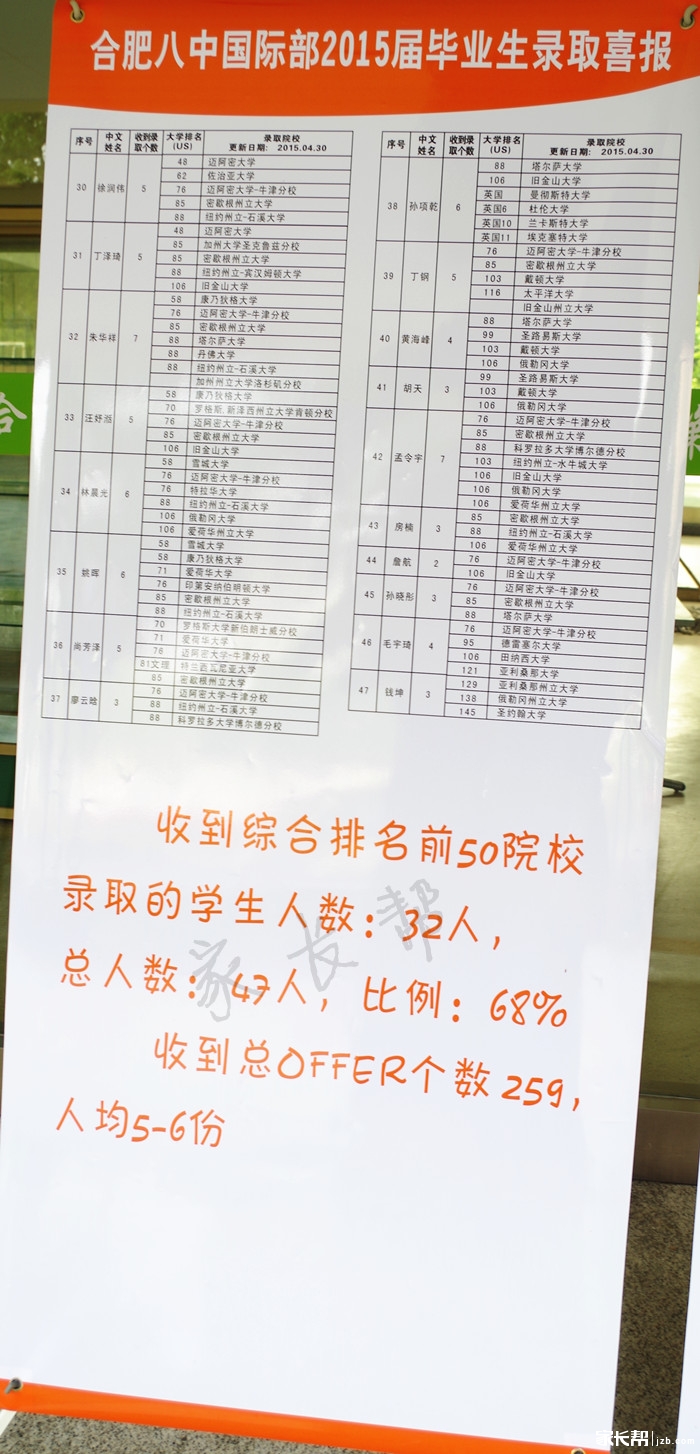 合肥八中国际部2015届毕业生录取喜报
序号 中文姓名 收到录取个数 大学排名(US) 录取院校 更新日期: 2015.04.30
30 徐润伟 5
48 迈阿密大学
62 佐治亚大学
76 迈阿密大学-牛津分校
85 密歇根州立大学
88 纽约州立-石溪大学
31 丁泽琦 5
48 迈阿密大学
85 加州大学圣克鲁兹分校
85 密歇根州立大学
88 纽约州立-宾汉姆顿大学
106 旧金山大学
32 朱华祥 7
58 康乃狄格大学
76 迈阿密大学-牛津分校
85 密歇根州立大学
88 塔尔萨大学
88 丹佛大学
88 纽约州立-石溪大学
加州州立大学洛杉矶分校
33 汪妤 5
58 康乃狄格大学
70 罗格斯,新泽西州立大学肯顿分校
76 迈阿密大学-牛津分校
85 密歇根州立大学
106 旧金山大学
34 林晨光 6
58 雪城大学
76 迈阿密大学-牛津分校
76 特拉华大学
88 纽约州立-石溪大学
106 俄勒冈大学
106 爱荷华州立大学
35 姚晖 6
58 雪城大学
58 康乃狄格大学
71 爱荷华大学
76 印第安纳伯明顿大学
85 密歇根州立大学
88 纽约州立-石溪大学
36 尚芳泽 5
70 罗格斯大学新伯朗士威分校
71 爱荷华大学
76 迈阿密大学-牛津分校
81文理 特兰西瓦尼亚大学
85 密歇根州立大学
37 廖云晗 3
76 迈阿密大学-牛津分校
88 纽约州立-石溪大学
88 科罗拉多大学博尔德分校
序号 中文姓名 收到录取个数 大学排名(US) 录取院校 更新日期: 2015.04.30
38 孙项乾 6
88 塔尔萨大学
106 旧金山大学
英国 曼彻斯特大学
英国6 杜伦大学
英国10 兰卡斯特大学
英国11 埃克塞特大学
39 丁钢 5
76 迈阿密大学-牛津分校
85 密歇根州立大学
103 戴顿大学
116 太平洋大学
旧金山州立大学
40 黄海峰 4
88 塔尔萨大学
99 圣路易斯大学
103 戴顿大学
106 俄勒冈大学
41 胡天 3
99 圣路易斯大学
103 戴顿大学
106 俄勒冈大学
42 孟令宇 7
76 迈阿密大学-牛津分校
85 密歇根州立大学
88 科罗拉多大学博尔德分校
103 纽约州立-水牛城大学
106 旧金山大学
106 俄勒冈大学
106 爱荷华州立大学
43 房楠 3
85 密歇根州立大学
88 纽约州立-石溪大学
106 爱荷华州立大学
44 詹航 2
76 迈阿密大学-牛津分校
106 旧金山大学
45 孙晓彤 3
76 迈阿密大学-牛津分校
85 密歇根州立大学
88 塔尔萨大学
46 毛宇琦 4
76 迈阿密大学-牛津分校
95 德雷塞尔大学
106 田纳西大学
121 亚利桑那大学
47 钱坤 3
129 亚利桑那州立大学
138 俄勒冈州立大学
145 圣约翰大学
收到综合排名前50院校
录取的学生人数：32人，
总人数：47人，比例：68%
收到总OFFER个数 259，
人均5-6份
家长帮
合
家长帮 jzb.com